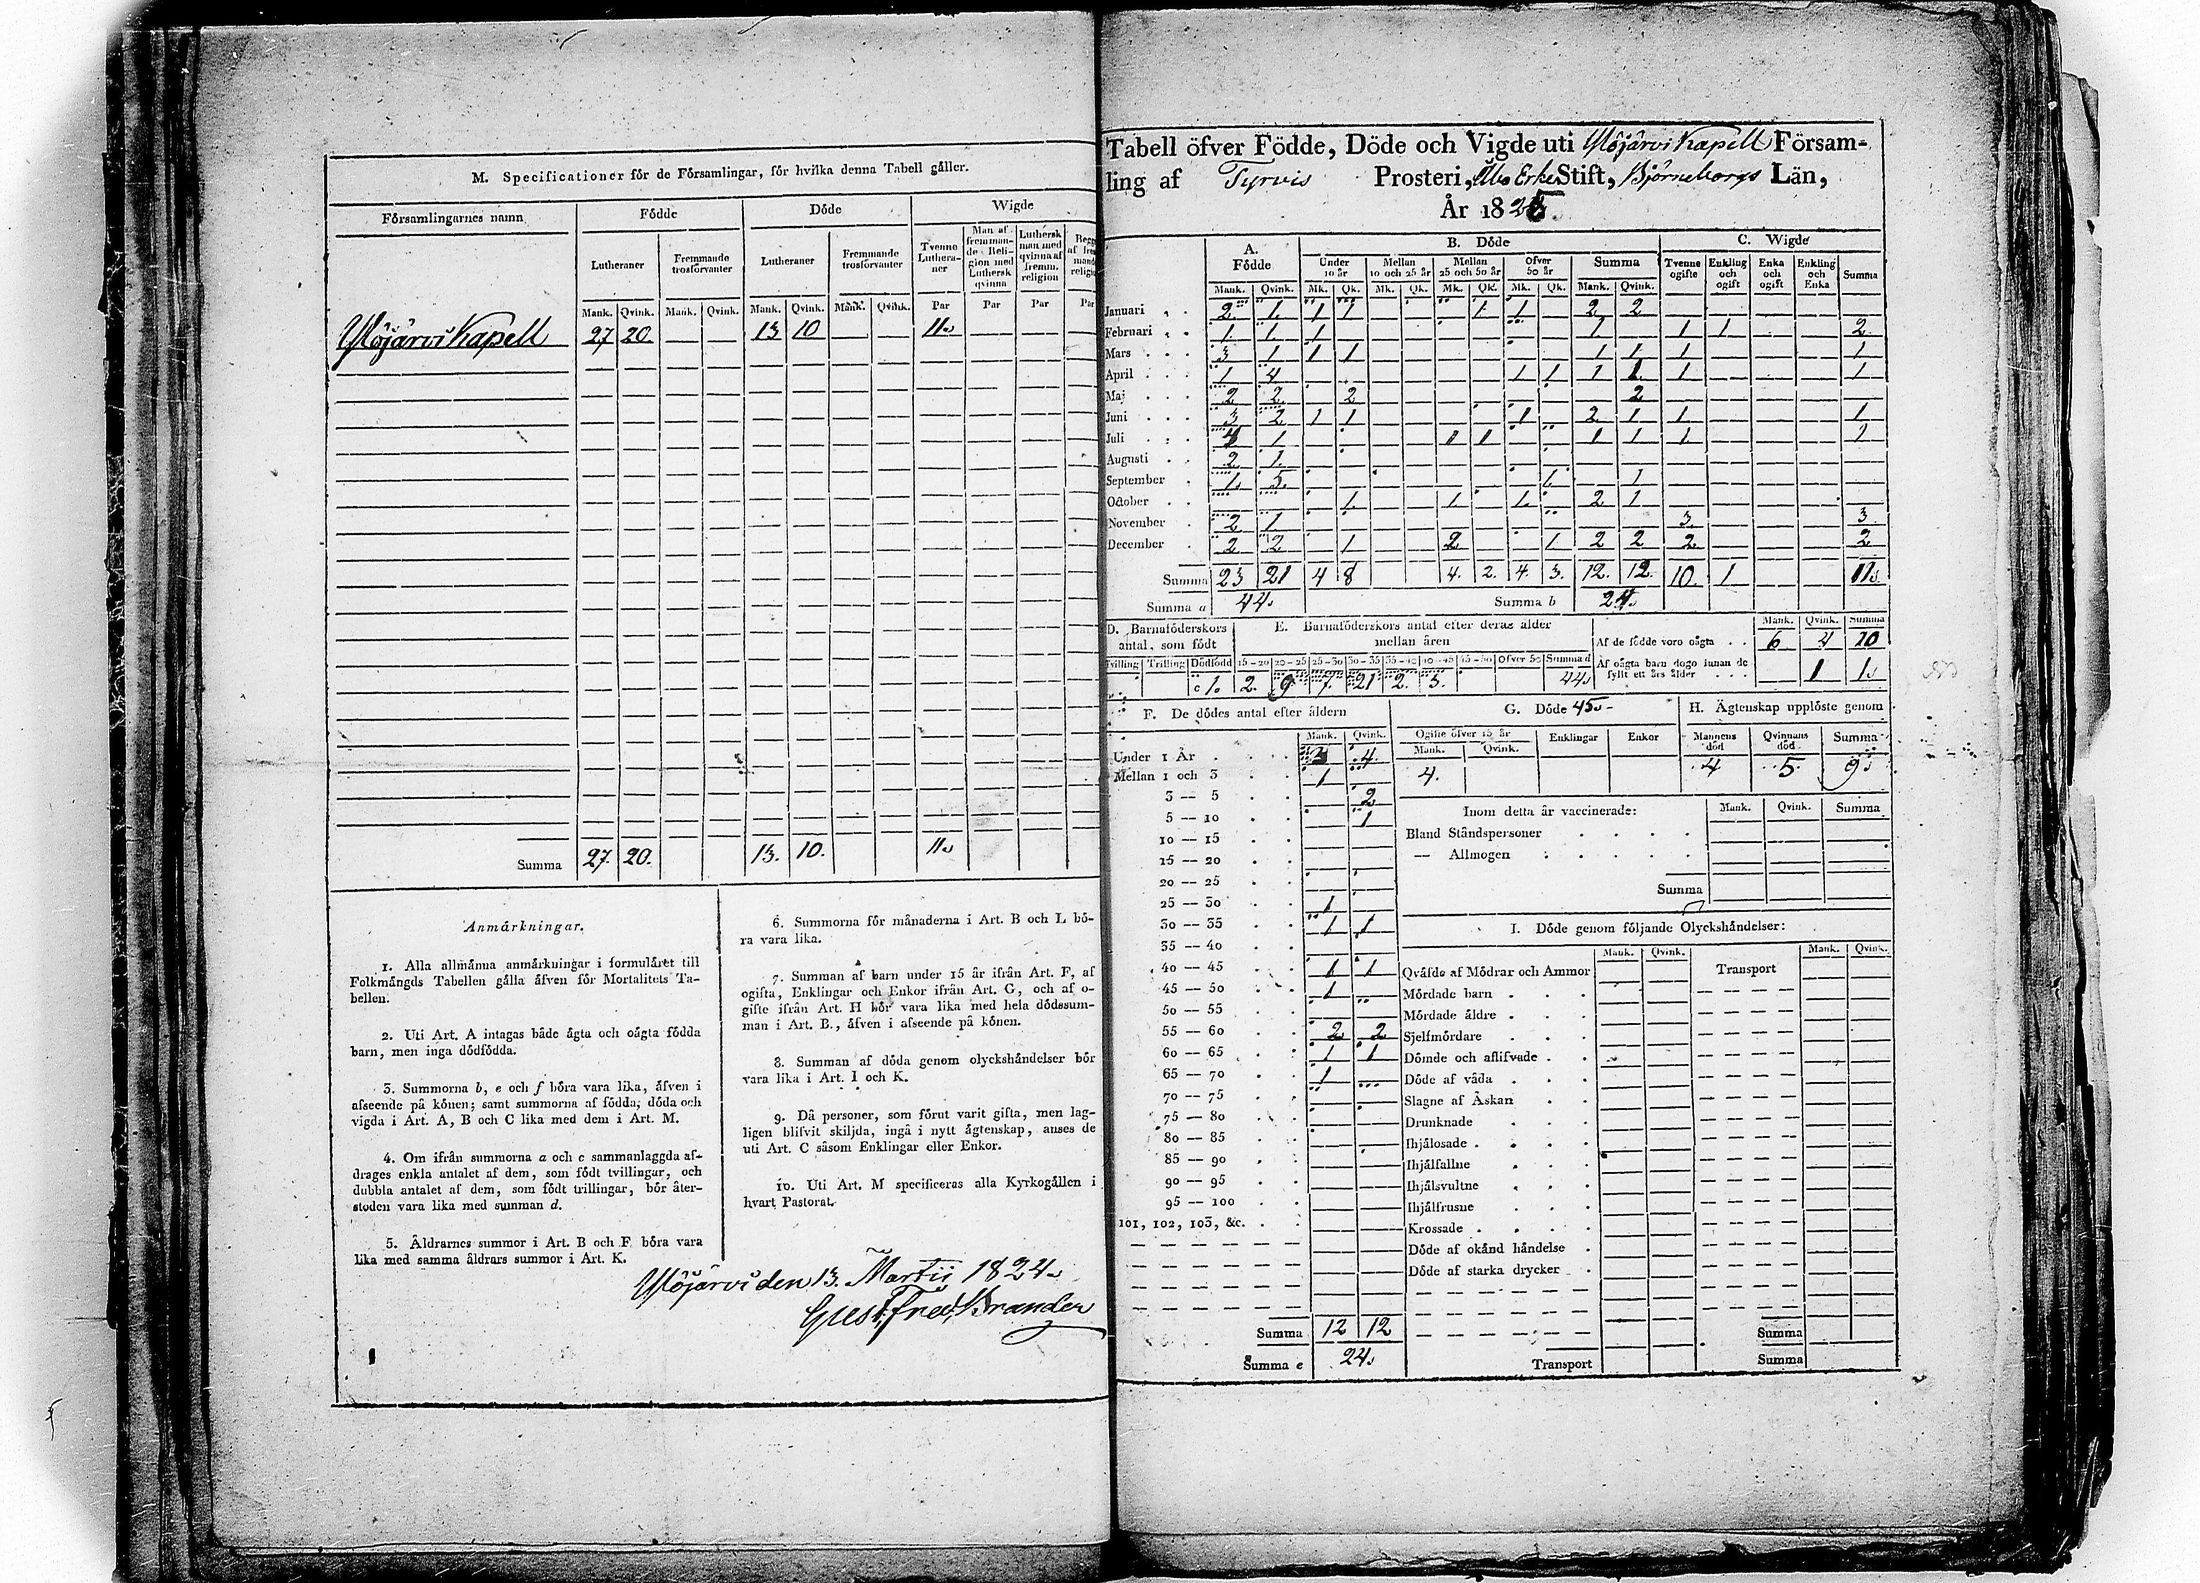 M. Specificationer för de Församlingar, för hvilka denna Tabell gäller.
Församlingarnes namn Födde Döde Wigde
Lutheraner Fremmande trosförvanter Lutheraner Fremmande trosförvanter Tvenne Lutheraner Man af fremmande Religion med Luthersk qvinna Luthersk man med qvinna af fremm. religion
Mank. Qvink. Mank. Qvink. Mank. Qvink. Mank. Qvink. Par Par Par Par
Ylöjärvi Kapell 27 20. 13 10 11.
Summa 27. 20. 13. 10. 11.
Anmärkningar.
1. Alla allmänna anmärkningar i formuläret till
Folkmängds Tabellen gälla äfven för Mortalitets Ta-
bellen.
2. Uti Art. A intagas både ägta och oägta födda
barn, men inga dödfödda.
3. Summorna b, e och f böra vara lika, äfven i
afseende på könen; samt summorna af födda, döda och
vigda i Art. A, B och C lika med dem i Art. M.
4. Om ifrån summorna a och c sammanlaggda af-
drages enkla antalet af dem, som födt tvillingar, och
dubbla antalet af dem, som födt trillingar, bör åter-
stoden vara lika med summan d.
5. Åldrarnes summor i Art. B och F böra vara
lika med samma åldrars summor i Art. K.
6. Summorna för månaderna i Art. B och L bö-
ra vara lika.
7. Summan af barn under 15 år ifrån Art. F, af
ogifta, Enklingar och Enkor ifrån Art. G, och af o-
gifte ifrån Art. H bör vara lika med hela dödssum-
man i Art. B., äfven i afseende på könen.
8. Summan af döda genom olyckshändelser bör
vara lika i Art. I och K.
9. Då personer, som förut varit gifta, men lag-
ligen blifvit skiljda, ingå i nytt ägtenskap, anses de
uti Art. C såsom Enklingar eller Enkor.
10. Uti Art. M specificeras alla Kyrkogällen i
hvart Pastorat.
Ylöjärvi den 13. Martii 1824.
Gust. Fred. Brander
Tabell öfver Födde, Döde och Vigde uti Ylöjärvi Kapell Försam-
ling af Tyrvis Prosteri, Åbo Erke Stift, Björneborgs Län,
År 182
A. Födde B. Döde C. Wigde
Under 10 år Mellan 10 och 25 år Mellan 25 och 50 år Öfver 50 år Summa Tvenne ogifte Enkling och ogift Enka och ogift Enkling och Enka Summa
Mank. Qvink. Mk. Qk. Mk. Qk. Mk. Qk. Mk. Qk. Mank. Qvink.
Januari 2 1. 1 1 1 1 2 2
Februari 1 1 1 1 1 1 2
Mars 3 1 1 1 1 1 1 1
April 1 4 1 1 1 1. 1 1
Maj 2 2. 2 2
Juni 3 2 1 1 1 2 1 1. 1
Juli 1 1 1 1 1 1 1
Augusti 2 1.
September 1. 5. 1. 1
October 1. 1. 1. 2 1
November 2 1. 3. 3.
December 2 2 1 2 1 2 2 2. 2
Summa 23 21 4 8 4. 2. 4. 3. 12. 12. 10. 1 11.
Summa a 44. Summa b 24.
D. Barnaföderskors antal, som födt
E. Barnaföderskors antal efter deras ålder mellan åren
Mank. Qvink. Summa
Af de födde voro oägta 6 4 10
Af oägta barn dogo innan de fyllt ett års ålder 1 1.
Tvilling Trilling Dödfödd 15-20 20-25 25-30 30-35 35-40 40-45 45-50 Öfver 50 Summa d
c 1. 2. 9 7. 21 2. 3. 44.
F. De dödes antal efter åldern
Mank. Qvink.
Under 1 År 3 4.
Mellan 1 och 3 1
3 — 5 2
5 — 10 1
10 — 15
15 — 20
20 — 25
25 — 30 1
30 — 35 1 1
35 — 40
40 — 45 1 1
45 — 50 1
50 — 55
55 — 60 2 2
60 — 65 1 1
65 — 70 1
70 — 75
75 — 80
80 — 85
85 — 90
90 — 95
95 — 100
101, 102, 103, &c.
Summa 12 12
Summa e 24.
G. Döde
Ogifte öfver 15 år Enklingar Enkor
Mank. Qvink.
4.
H. Ägtenskap upplöste genom
Mannens död Qvinnans död Summa
4 5. 9.
Inom detta år vaccinerade: Mank. Qvink. Summa
Bland Ståndspersoner
— Allmogen
Summa
I. Döde genom följande Olyckshändelser:
Mank. Qvink. Mank. Qvink.
Qväfde af Mödrar och Ammor Transport
Mördade barn
Mördade äldre
Sjelfmördare
Dömde och aflifvade
Döde af våda
Slagne af Åskan
Drunknade
Ihjälosade
Ihjälfallne
Ihjälsvultne
Ihjälfrusne
Krossade
Döde af okänd händelse
Döde af starka drycker
Summa
Transport Summa